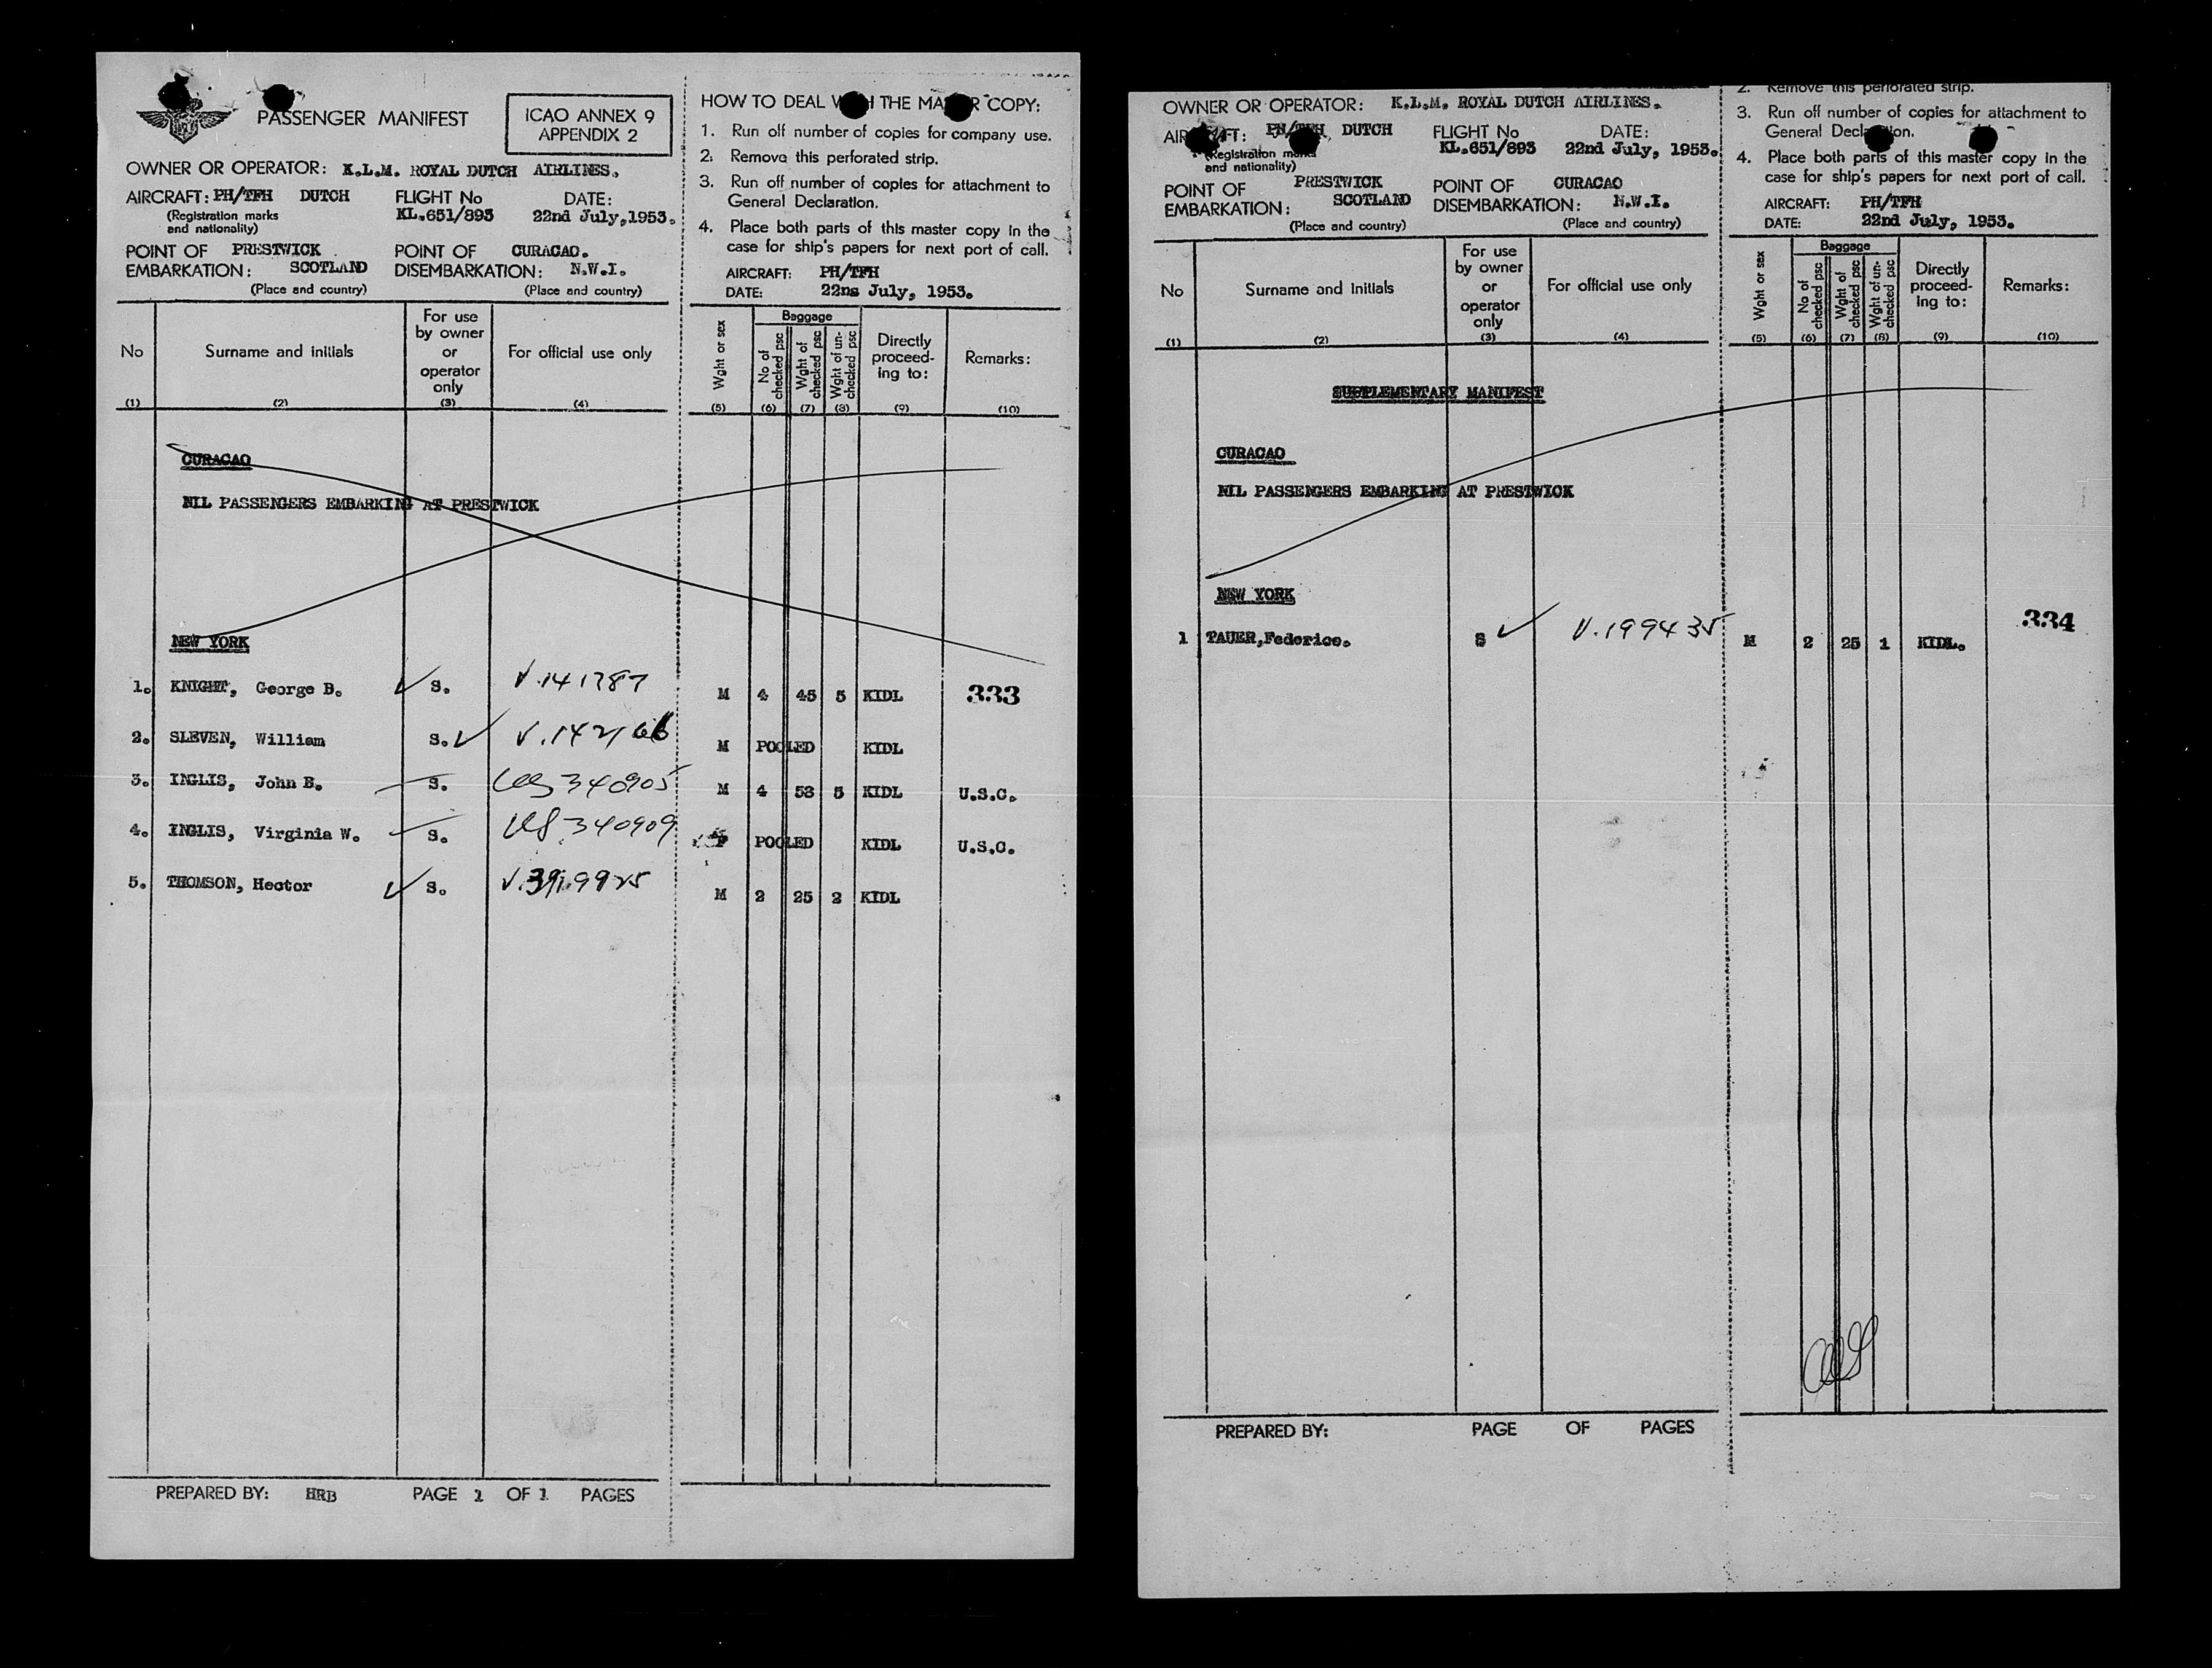 PASSENGER MANIFEST
ICAO ANNEX 9
APPENDIX 2
OWNER OR OPERATOR: K.L.M. ROYAL DUTCH AIRLINES.
AIRCRAFT: PH/TFH DUTCH FLIGHT No DATE:
(Registration marks KL.651/893 22nd July, 1953.
and nationality)
POINT OF PRESTWICK POINT OF CURACAO.
EMBARKATION: SCOTLAND DISEMBARKATION: N.W.I.
(Place and country) (Place and country)
HOW TO DEAL THE COPY:
1. Run off number of copies for company use.
2. Remove this perforated strip.
3. Run off number of copies for attachment to
General Declaration.
4. Place both parts of this master copy in the
case for ship's papers for next port of call.
AIRCRAFT: PH/TFH
DATE: 22ns July, 1953.
No Surname and initials For use by owner or operator only For official use only Wght or sex Baggage No of checked psc Wght of checked psc Wght of un-checked psc Directly proceed-ing to: Remarks:
(1) (2) (3) (4) (5) (6) (7) (8) (9) (10)
CURACAO
NIL PASSENGERS EMBARKING AT PRESTWICK
NEW YORK
1. KNIGHT, George B. S. V.141787 M 4 45 5 KIDL 333
2. SLEVEN, William S. M POOLED KIDL
3. INGLIS, John B. S. 340905 M 4 53 5 KIDL U.S.C.
4. INGLIS, Virginia W. S. 340909 F POOLED KIDL U.S.C.
5. THOMSON, Hector S. M 2 25 2 KIDL
PREPARED BY: HRB PAGE 1 OF 1 PAGES
OWNER OR OPERATOR: K.L.M. ROYAL DUTCH AIRLINES.
PH/TFH DUTCH FLIGHT No DATE:
(Registration marks KL.651/893 22nd July, 1953.
and nationality)
POINT OF PRESTWICK POINT OF CURACAO
EMBARKATION: SCOTLAND DISEMBARKATION: N.W.I.
(Place and country) (Place and country)
2. Remove this perforated strip.
3. Run off number of copies for attachment to
General Declaration.
4. Place both parts of this master copy in the
case for ship's papers for next port of call.
AIRCRAFT: PH/TFH
DATE: 22nd July, 1953.
No Surname and initials For use by owner or operator only For official use only Wght or sex Baggage No of checked psc Wght of checked psc Wght of un-checked psc Directly proceed-ing to: Remarks:
(1) (2) (3) (4) (5) (6) (7) (8) (9) (10)
SUPPLEMENTARY MANIFEST
CURACAO
NIL PASSENGERS EMBARKING AT PRESTWICK
NEW YORK
1 TAUER, Federico. S V.199435 M 2 25 1 KIDL. 334
PREPARED BY: PAGE OF PAGES